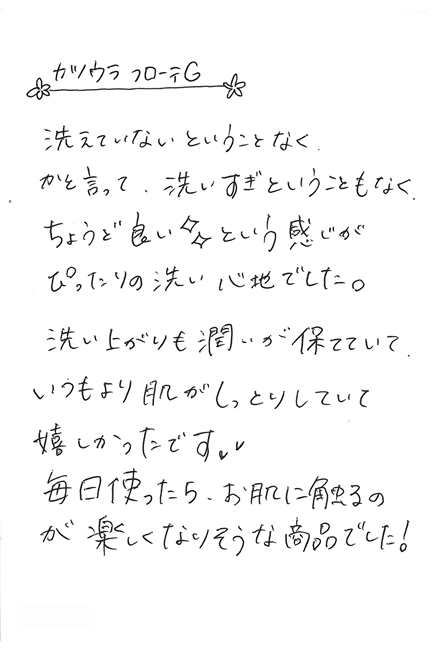 ガソウラ フローテG
洗えていないということなく、
かと言って、洗いすぎということもなく、
ちょうど良い✨という感じが
ぴったりの洗い心地でした。
洗い上がりも潤いが保てていて、
いつもより肌がしっとりしていて
嬉しかったです
毎日使ったら、お肌に触るの
が楽しくなりそうな商品でした!